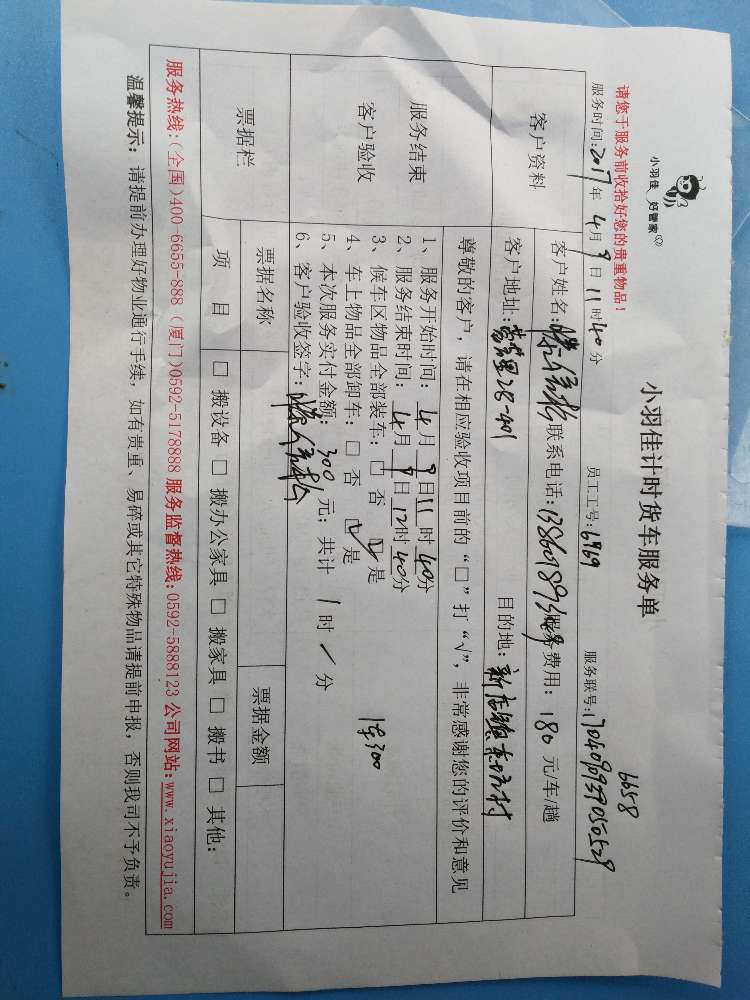 小羽佳 好管家
小羽佳计时货车服务单
6658
请您于服务前收拾好您的贵重物品！
服务时间：2017年 4月 9日 11时 40分 员工工号：6969 服务联号：
客户资料
客户姓名： 联系电话： 服务费用：180元/车/趟
客户地址： 28-401 目的地：新店镇
服务结束
客户验收
尊敬的客户，请在相应验收项目前的“□”打“√”，非常感谢您的评价和意见
1、服务开始时间：4月 9日 11时 40分
2、服务结束时间：4月 9日 12时 40分
3、候车区物品全部装车：□ 否 ☑ 是
4、车上物品全部卸车：□ 否 ☑ 是
5、本次服务实付金额：300元；共计 1时 / 分
300
6、客户验收签字：
票据栏
票据名称 票据金额
项 目 □ 搬设备 □ 搬办公家具 □ 搬家具 □ 搬书 □ 其他：
服务热线：（全国）400-6655-888（厦门）0592-5178888 服务监督热线：0592-5888123 公司网站：www.xiaoyujia.com
温馨提示：请提前办理好物业通行手续，如有贵重、易碎或其它特殊物品请提前申报，否则我司不予负责。